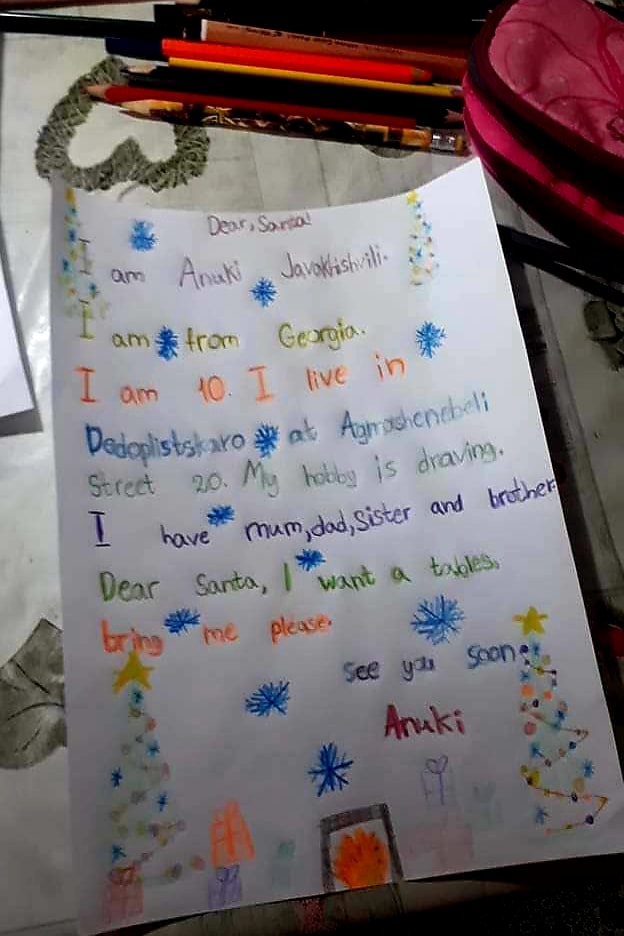 Dear, Santa!
I am Anuki Javakhishvili.
I am from Georgia.
I am 10. I live in
Dedoplistskaro at Agmashenebeli
Street 20. My hobby is draving.
I have mum,dad,Sister and brother.
Dear Santa, I want a tables.
bring me please.
see you soon.
Anuki